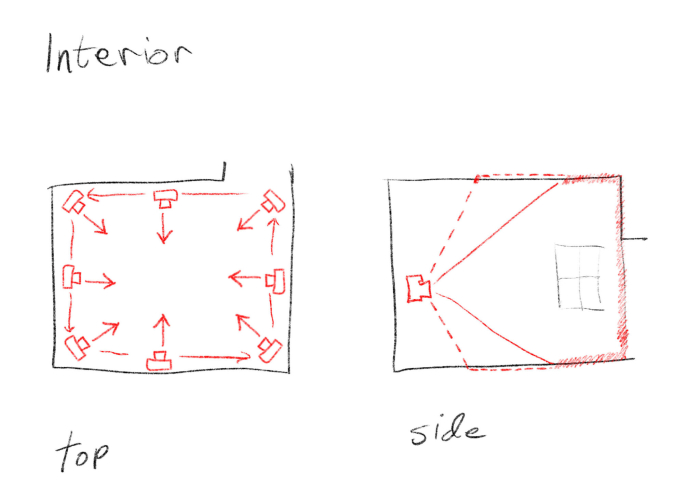 Interior
top
side